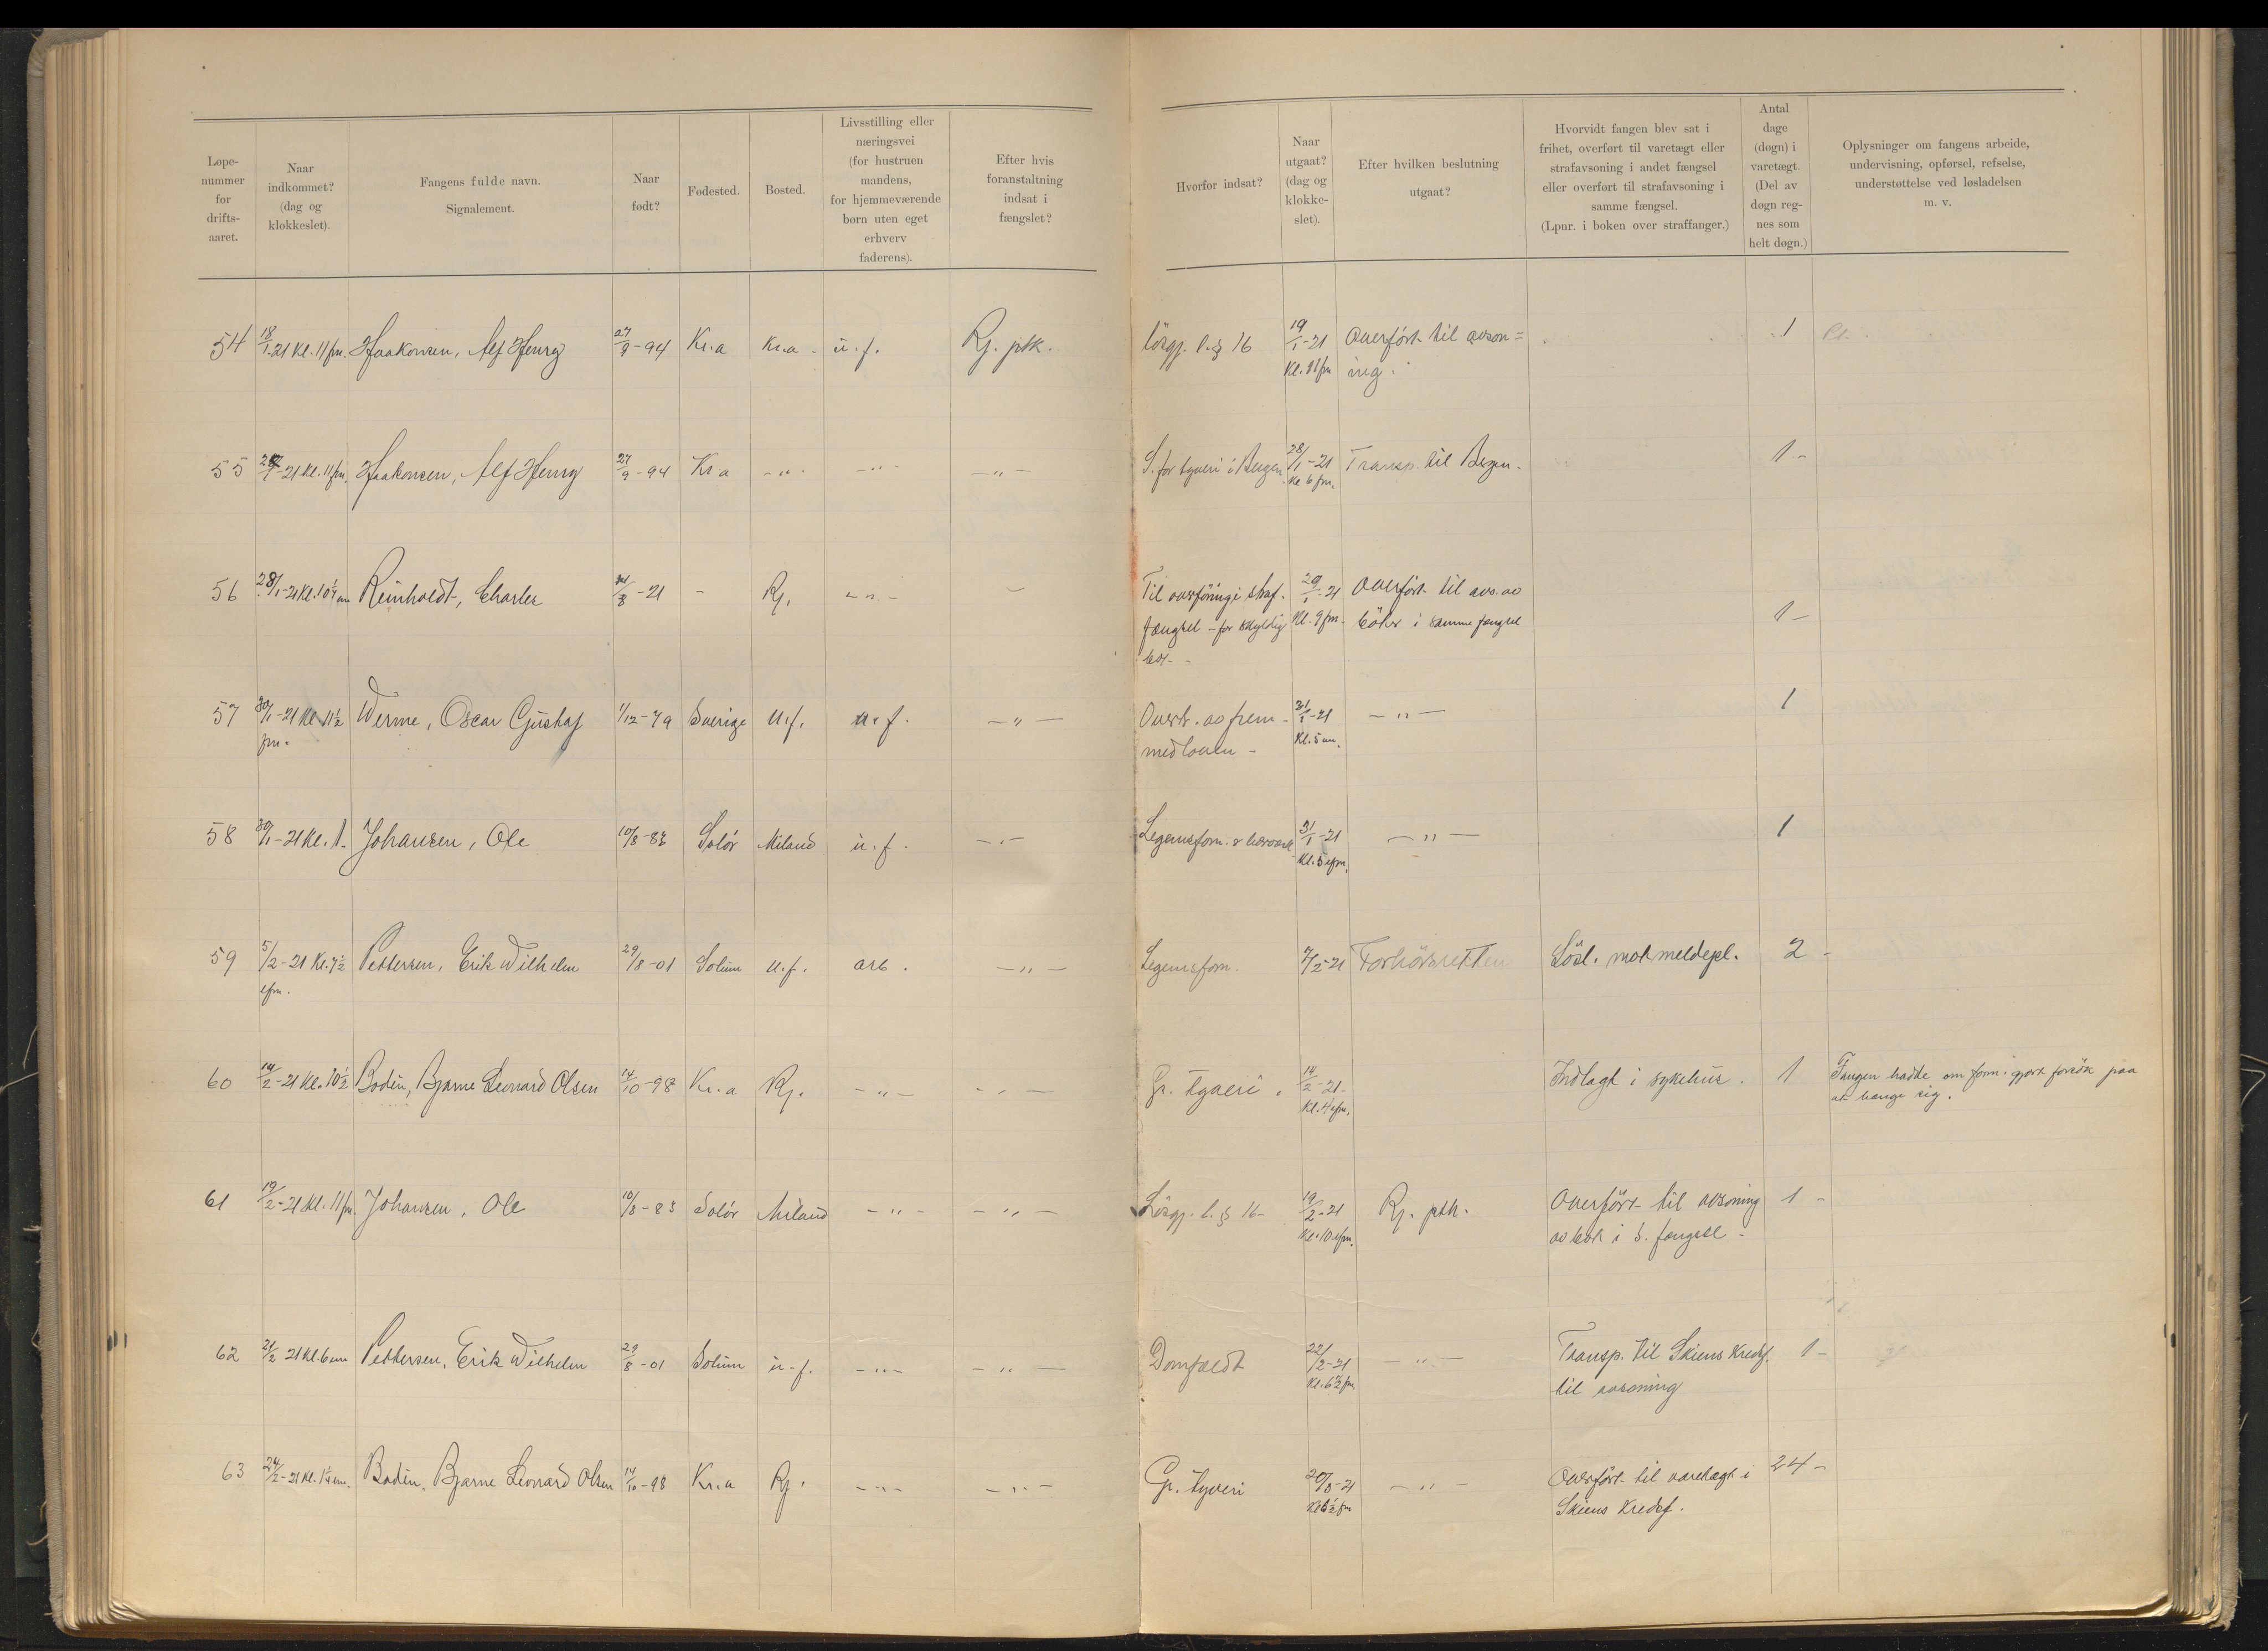 Løpe-
nummer
for
drifts-
aaret.
Naar
indkommet?
(dag og
klokkeslet).
Fangens fulde navn.
Signalement.
Naar
født?
Fødested.
Bosted.
Livsstilling eller
næringsvei
(for hustruen
mandens,
for hjemmeværende
børn uten eget
erhverv
faderens).
Efter hvis
foranstaltning
indsat i
fængslet?
Hvorfor indsat?
Naar
utgaat?
(dag og
klokke-
slet).
Efter hvilken beslutning
utgaat?
Hvorvidt fangen blev sat i
frihet, overført til varetægt eller
strafavsoning i andet fængsel
eller overført til strafavsoning i
samme fængsel.
(Lpnr. i boken over straffanger.)
Antal
dage
(døgn) i
varetægt.
(Del av
døgn reg-
nes som
helt døgn.)
Oplysninger om fangens arbeide,
undervisning, opførsel, refselse,
understøttelse ved løsladelsen
m. v.
54 18/1-21 Kl. 11 fm. Haakonsen, Alf Henry 27/9-94 Kr.a Kr.a - u. f. Rj. ptk. Lösgj. l. § 16 19/1-21 Overfört til avson=
Kl. 11 fm ing. 1
55 -21 Kl. 11 fm. Haakonsen, Alf Henry 27/9-94 Kr a - " - - " - - " - S. for tyveri i Bergen 28/1-21 Transp. til Bergen - 1 -
Kl 6 fm.
56 28/1-21 Kl. 10 Reinholdt, Charles -21 - Rj. - " - - Til overföring i straf. 29/1-21 Overfört til avs. av
fængsel - for skyldig Kl. 9 fm - böter i samme fængsel 1 -
bot -
57 30/1-21 Kl 11 1/2 Werme, Oscar Gustaf 1/12-79 Sverige u. f. u. f. - " - Overtr. av frem- 31/1-21 - " - 1
fm. medloven - Kl. 5 em.
58 30/1-21 Kl. 1. Johansen, Ole 10/8-83 Solör Miland u. f. - " - Legemsforn. 31/1-21 - " - 1
Kl. 5 efm.
59 5/2-21 Kl. 7 1/2 Pettersen, Erik Wilhelm 29/8-01 Solum u. f. arb. - " - Legemsforn. 7/2-21 Forhörsretten Lösl. mot meldepl. 2 -
efm.
60 14/2-21 Kl. 10 1/2 Bodin, Bjarne Leonard Olsen 14/10-98 Kr. a Rj. - " - - " - Gr. tyveri. 14/2-21 Indlagt i sykehus. 1 Fangen hadde om form. gjort forsök paa
Kl. 4 efm. at henge sig.
61 19/2-21 Kl. 11 fm. Johansen, Ole 10/8-83 Solör Miland - " - - " - Lösgj. l. § 16 - 19/2-21 Rj. ptk. Overfört til avsoning 1 -
Kl. 10 efm. av bot i s. fængsel -
62 21/2 21 Kl. 6 em Pettersen, Erik Wilhelm 29/8-01 Solum u - f. - " - - " - Domfældt 22/2-21 - " - Transp. til Skiens Kredsf. 1 -
Kl. 6 1/2 fm. til avsoning
63 24/2-21 Kl. em. Bodin, Bjarne Leonard Olsen 14/10-98 Kr. a Rj. - " - - " - Gr. tyveri 20/3-21 - " - Overfört til varetægt i 24 -
fm Skiens Kredsf.